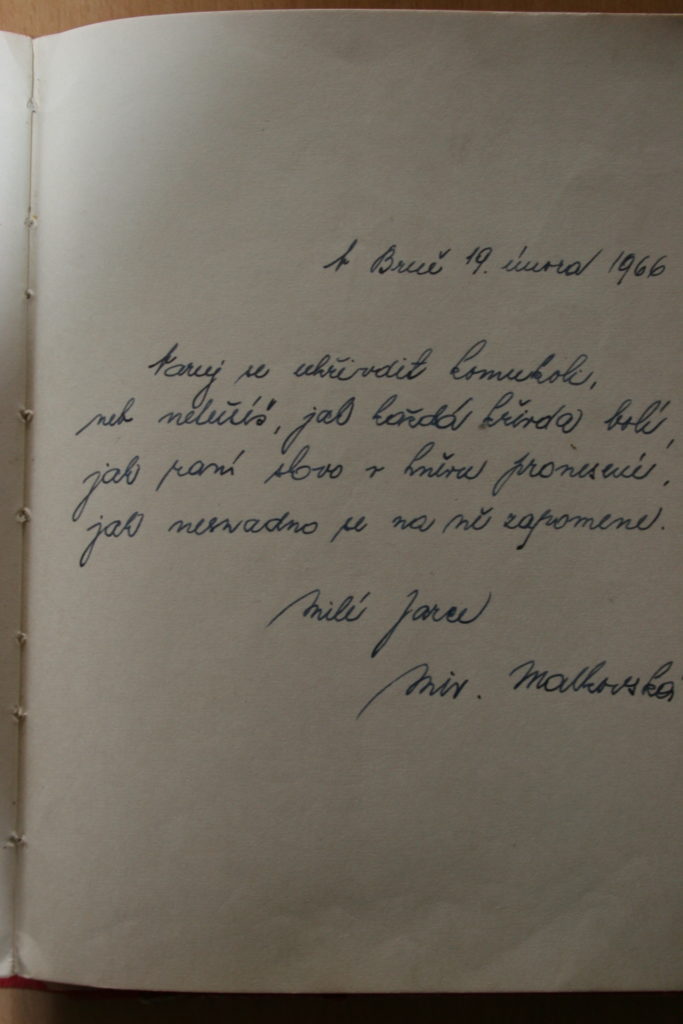 V Brně 19. února 1966
Varuj se ukřivdit komukoli,
neb netušíš, jak každá křivda bolí,
jak raní slovo v hněvu pronesené,
jak nesnadno se na ně zapomene.
Milé Jarce
Mir. Malkovská